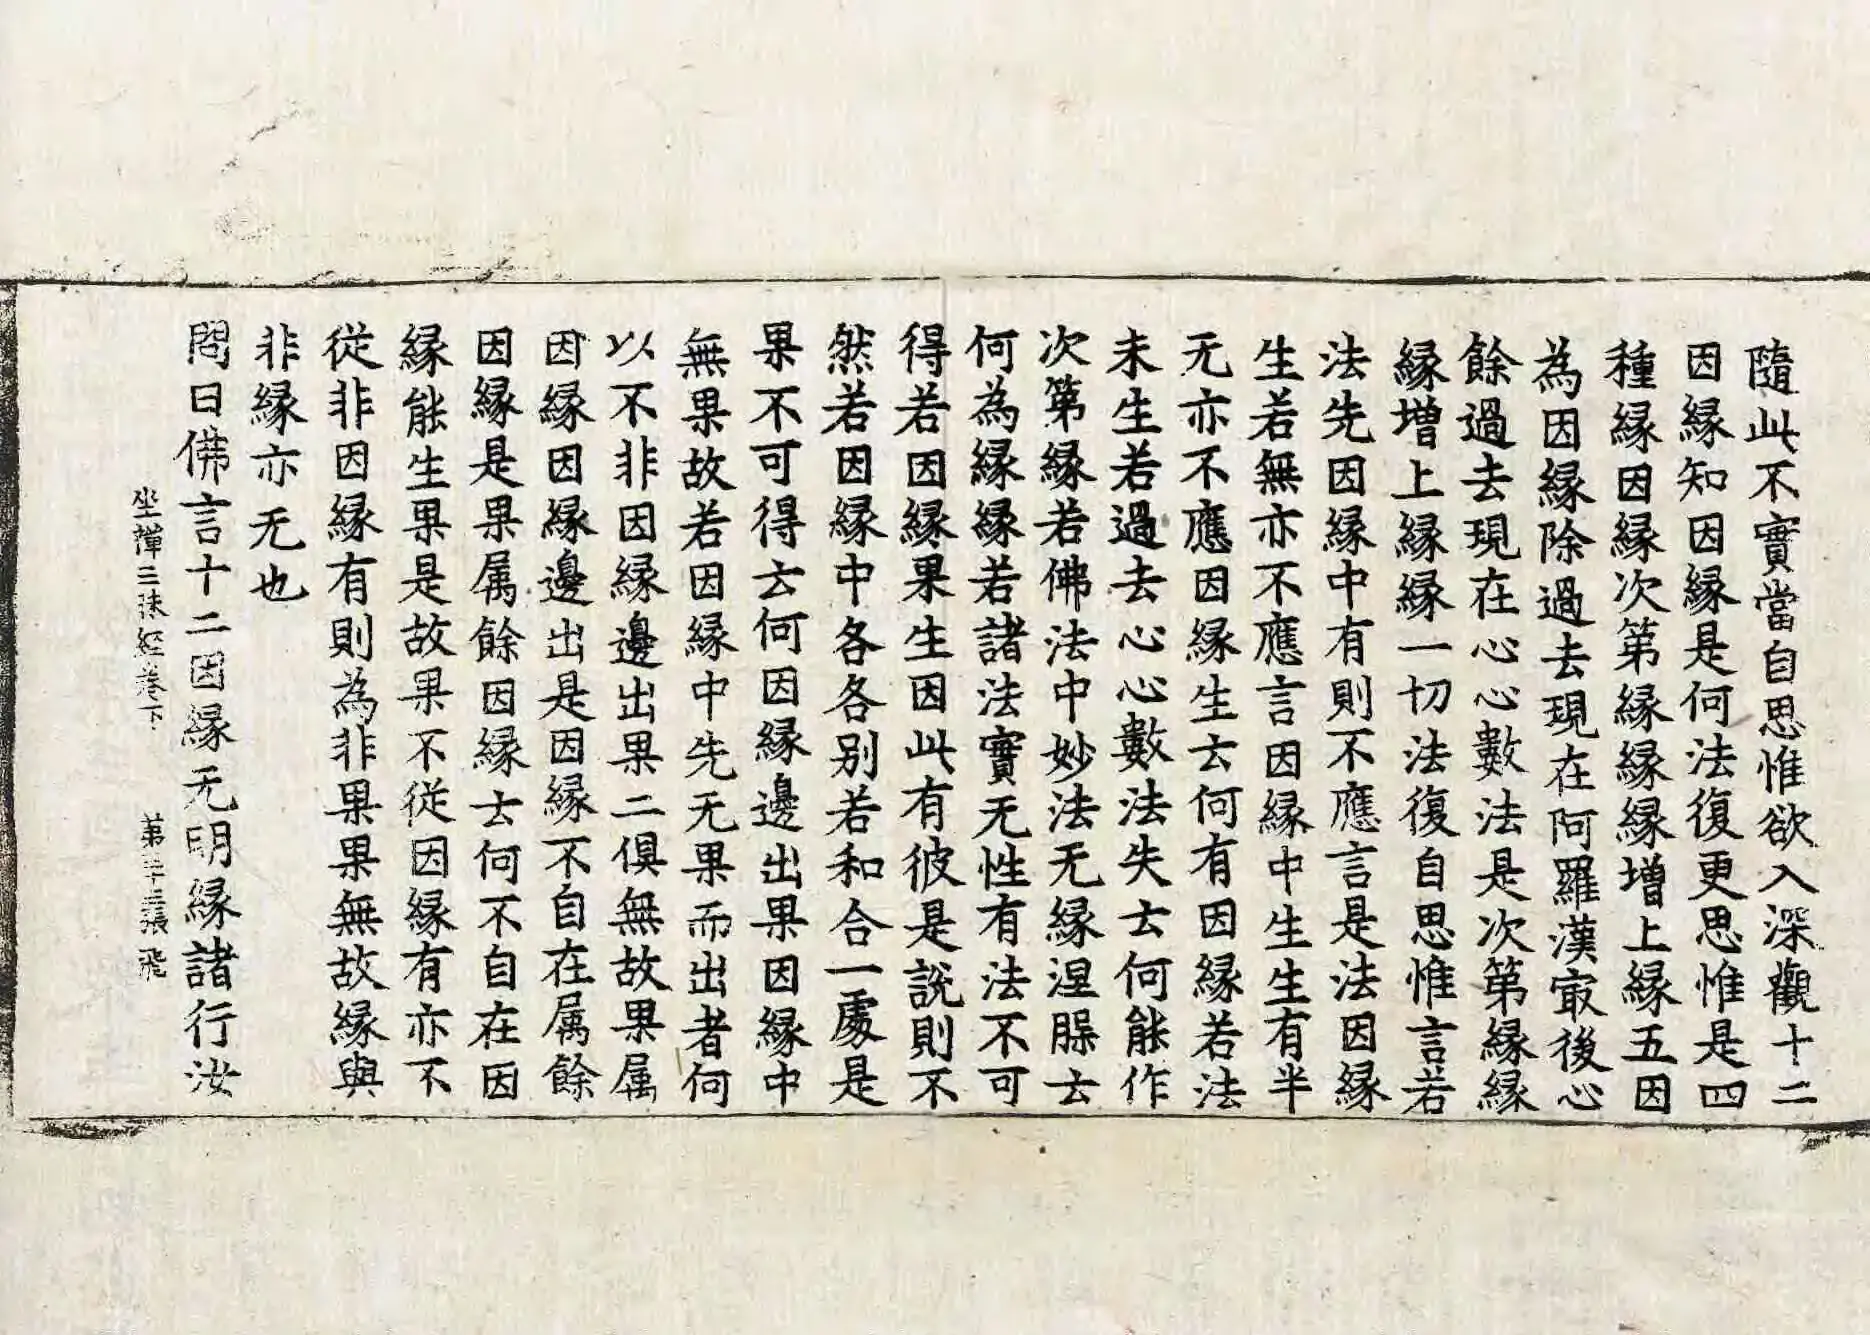 隨此不實當自思惟欲入深觀十二
因縁知因縁是何法復更思惟是四
種縁因縁次第縁縁縁增上縁五因
為因縁除過去現在阿羅漢㝡後心
餘過去現在心心數法是次第縁縁
縁增上縁縁一切法復自思惟言若
法先因縁中有則不應言是法因縁
生若無亦不應言因縁中生生有半
无亦不應因縁生云何有因縁若法
未生若過去心心數法失云何能作
次第縁若佛法中妙法无縁涅槃云
何為縁縁若諸法實无性有法不可
得若因縁果生因此有彼是說則不
然若因縁中各各別若和合一處是
果不可得云何因縁邊出果因縁中
無果故若因縁中先无果而出者何
以不非因縁邊出果二俱無故果属
因縁因縁邊出是因縁不自在属餘
因縁是果属餘因縁云何不自在因
縁能生果是故果不從因縁有亦不
從非因縁有則為非果果無故縁與
非縁亦无也
問曰佛言十二因縁无明縁諸行汝
坐禪三昧經卷下 第二十三張 飛